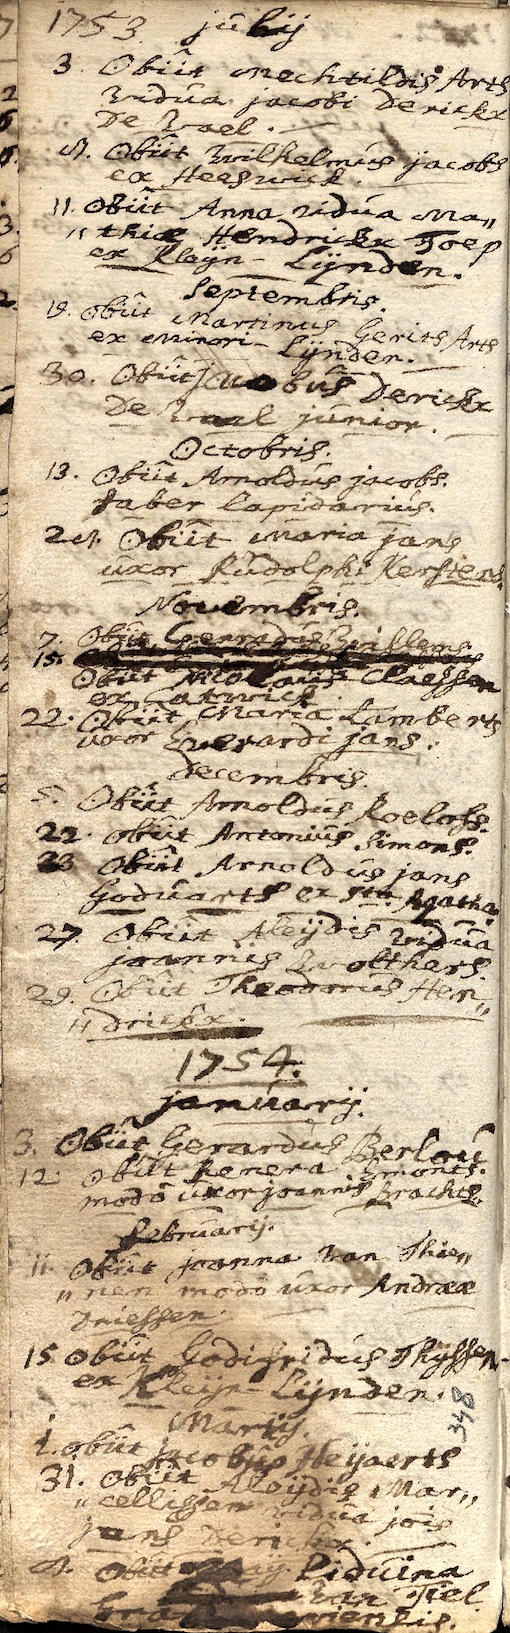 1753 julij
3. Obiit Mechtildis Arts
vidua jacobi Derickx
De Wael.
9. Obiit Wilhelmus jacobs
ex Heeswick.
11. Obiit Anna vidua Ma„
„thiæ Hendrickx Joep
ex Kleijn-Lijnden.
Septembris.
19. obiit Martinus Gerits Arts
ex Minori-Lijnden.
30. Obiit Jacobus Derickx
De Wael junior.
Octobris.
13. Obiit Arnoldus jacobs.
faber Lapidarius.
29. Obiit Maria jans
uxor Rudolphi Kerstens.
Novembris.
7. Obiit Gerardus Willems.
15.
Obiit Nicolaus Claessen
ex Catwick.
22. Obiit Maria Lamberts
uxor Everardi jans.
decembris.
5. Obiit Arnoldus Roelofs.
22. obiit Antonius Simons.
23 Obiit Arnoldus jans
Goduarts ex Sta Agatha.
27. Obiit Aleijdis vidua
joannis Wolthers.
29. Obiit Theodorus Hen„
„drickx.
1754.
januarij.
3. Obiit Gerardus
12 Obiit Renera
modo uxor joannis Brachts.
februarij.
11. Obiit joanna van Thie„
„nen modo uxor Andreæ
Driessen.
15 obiit Godefridus Thyssen
ex Kleijn-Lijnden.
348
Martij.
1. obiit jacobus Heijaerts
31. Obiit Aleijdis Mar„
„cellissen vidua jois
jans
9. Obiit Liduina
van Tiel